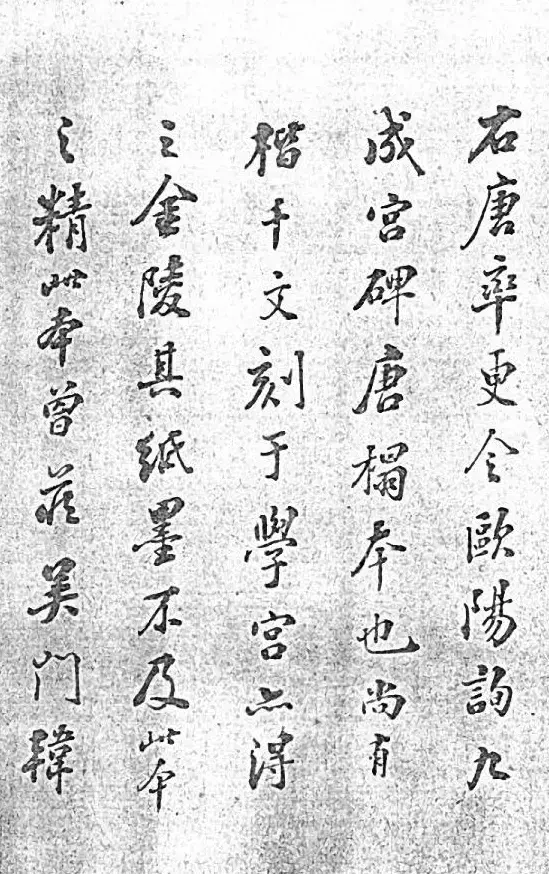 右唐率更令歐陽詢九
成宮碑唐榻本也尚有
楷千文刻于學宮亦得
之金陵其紙墨不及此本
之精此本曾藏吳門韓